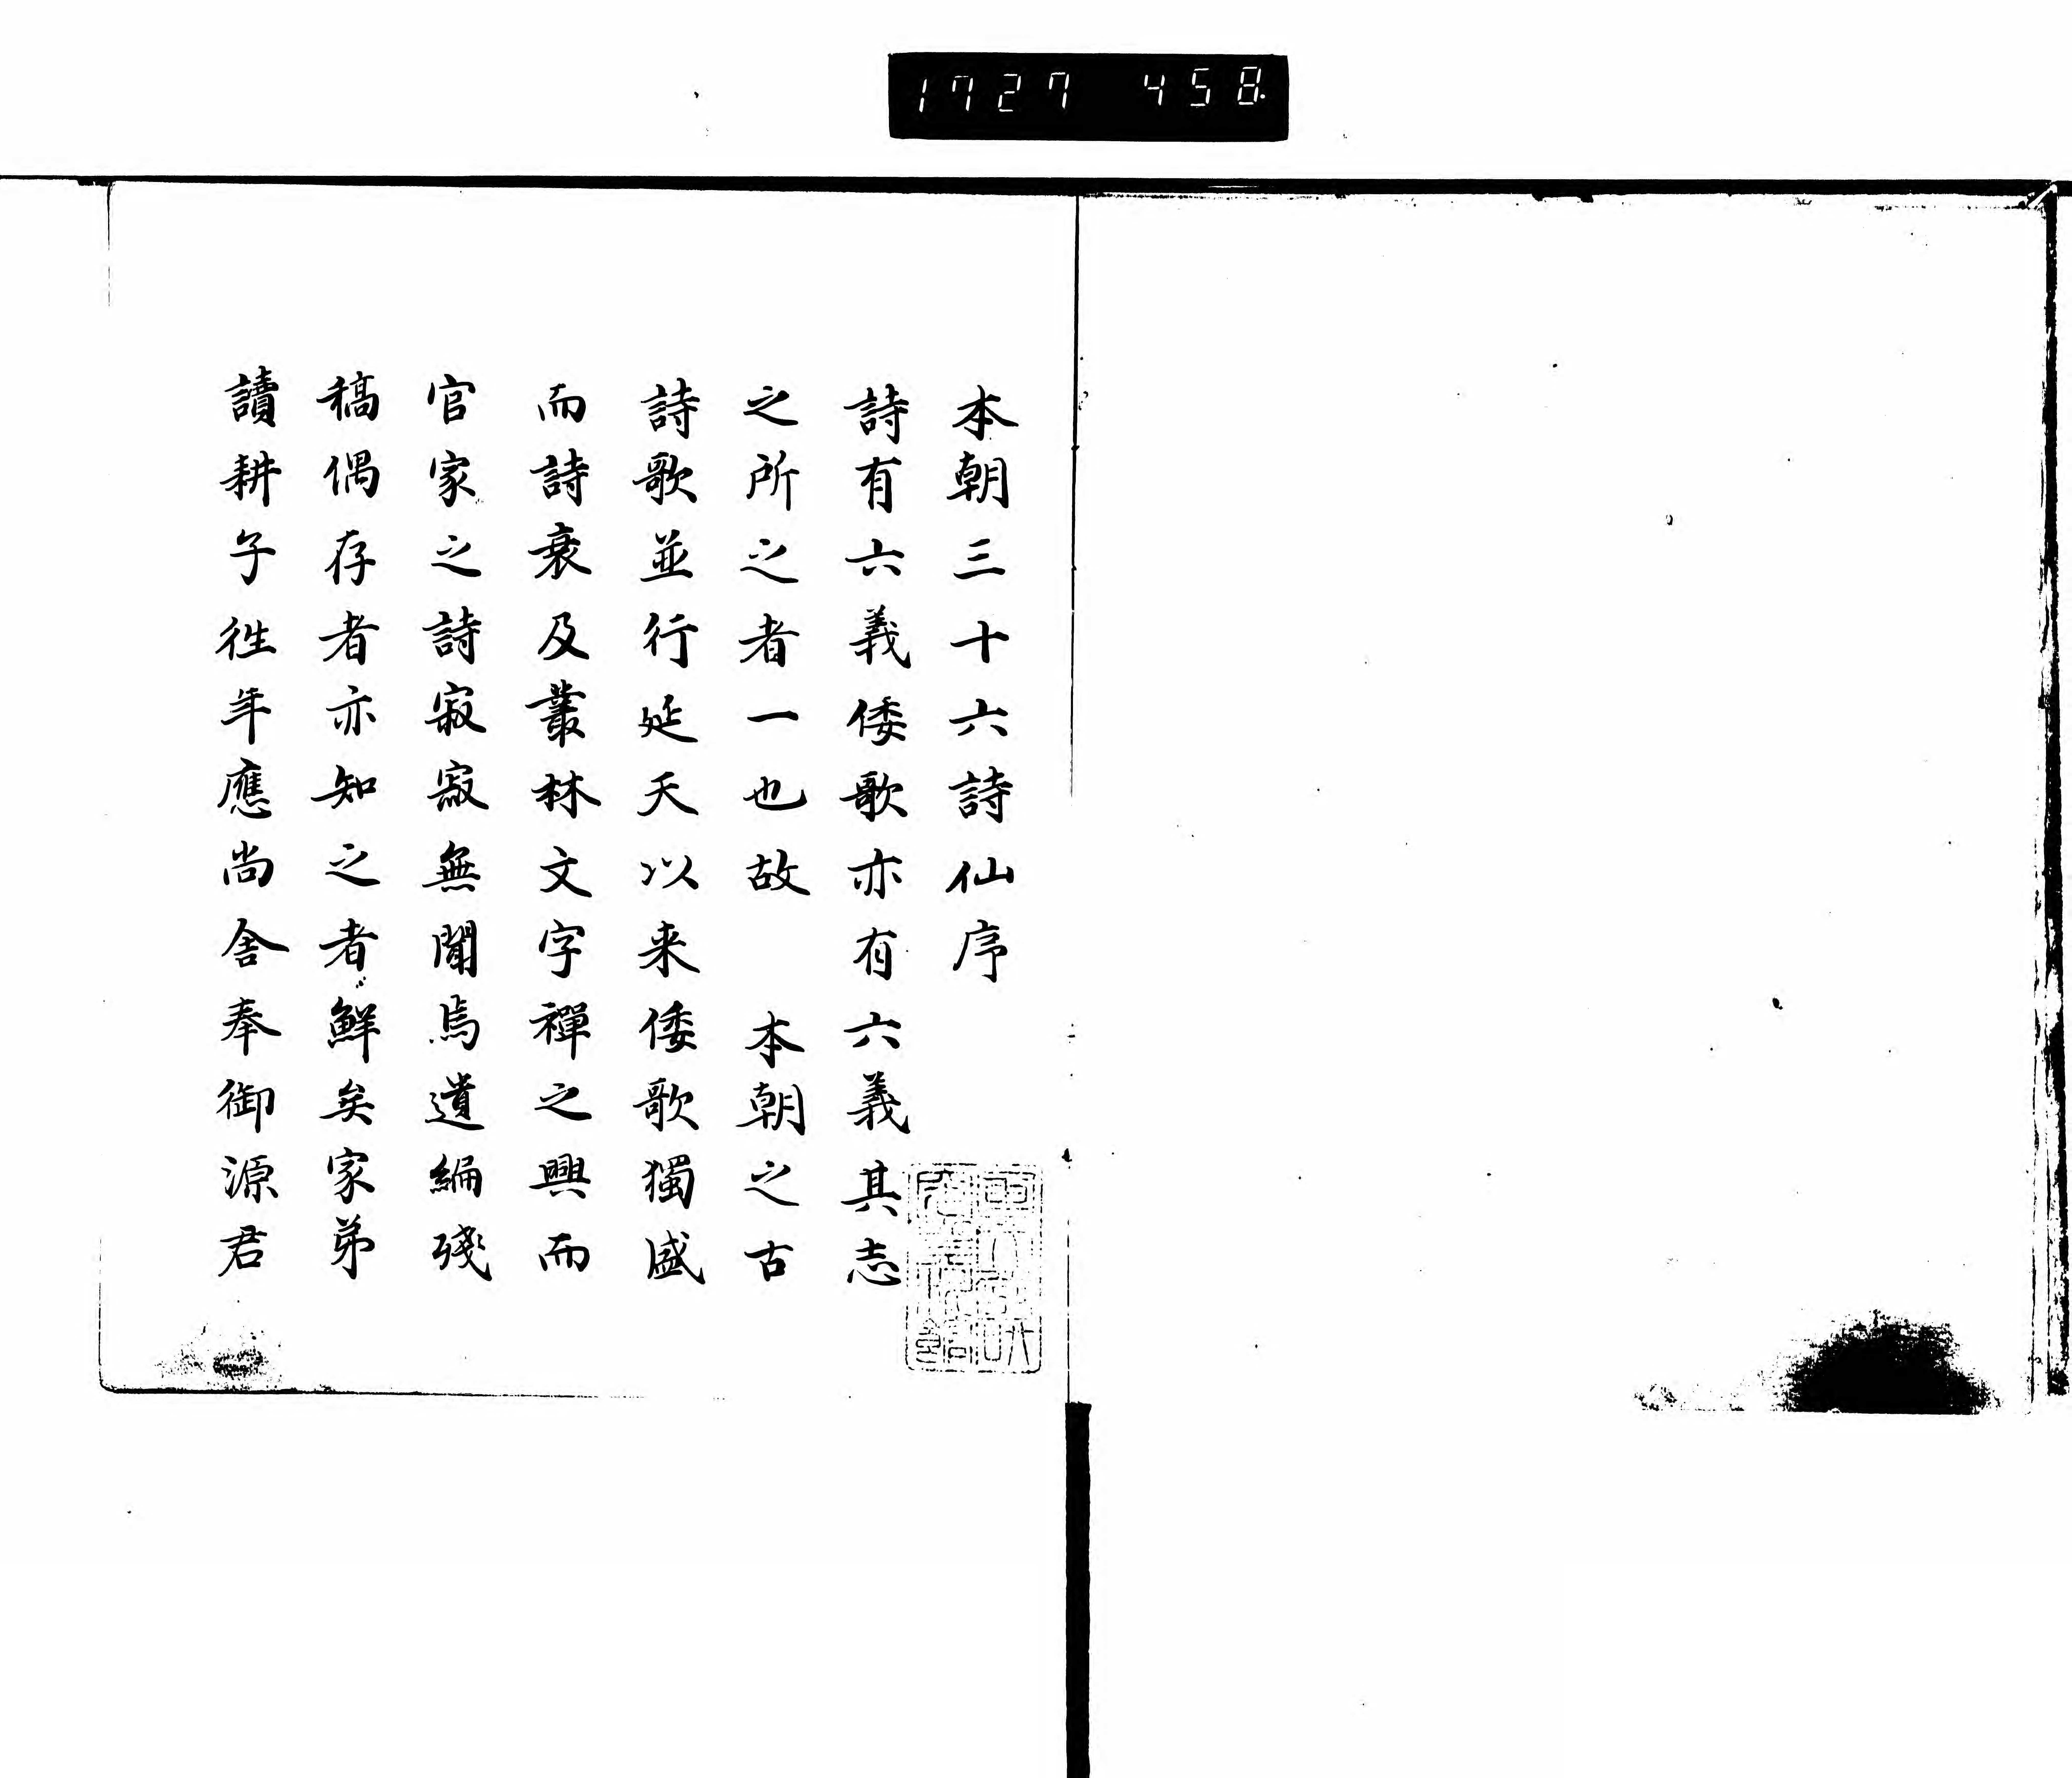 1727 458
本朝三十六詩仙序
詩有六義倭歌亦有六義其志
之所之者一也故　本朝之古
詩歌並行延天以来倭歌獨盛
而詩衰及叢林文字禪之興而
官家之詩寂寂無聞焉遺編殘
稿偶存者亦知之者鮮矣家弟
讀耕子徃年應尚舍奉御源君